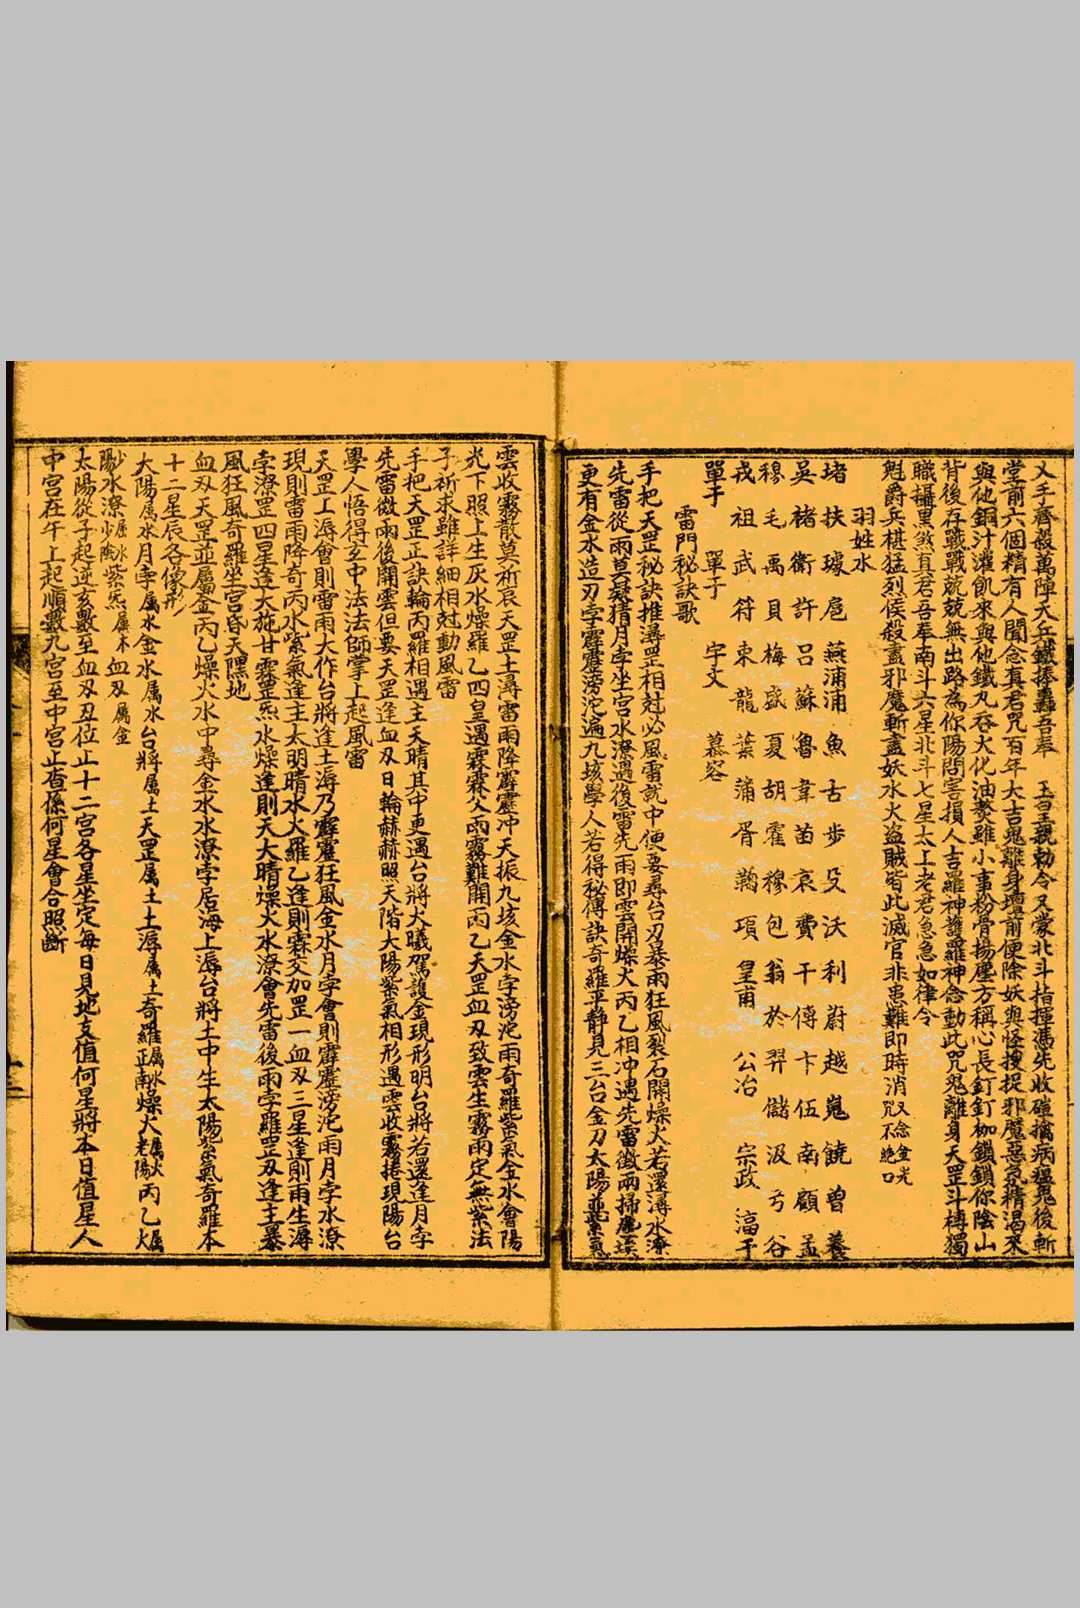 又手齊殺萬陣天丘鐵捧轟吾奉 玉皇親勅令又蒙北斗指揮馮先收磓擒病瘟鬼後斬
堂前六個精有人聞念真君咒百年大吉鬼離身壇前便除妖與怪搜捉邪魔惡氣精渴來
與他銅汁灌飢來與他鐵丸吞大化油熬雖小事粉骨揚塵方稱心長釘釘枷鎖鎖你陰山
背後存戰戰兢兢無出路為你陽間害損人吉羅神護羅神念動此咒鬼離身天罡斗轉獨
職攝黑煞真君吾奉南斗六星北斗七星太上老君急急如律令
魁爵兵棋猛烈侯殺盡邪魔斬盡妖水火盜賊皆此滅官非患難即時消 又念金光咒不絶口
羽姓水
堵 扶 璩 扈 燕 浦浦 魚 古 步 殳 沃 利 蔚 越 嵬 饒 曽 養
吳 褚 衛 許 呂 蘇 魯 韋 苗 哀 費 干 傅 卞 伍 南 顧 孟
穆 毛 禹 貝 梅 盛 夏 胡 霍 穆 包 翁 於 羿 儲 汲 亏 谷
戎 祖 武 符 束 龍 葉 蒲 胥 鞫 項 皇甫 公冶 宗政 滀于
單于 單于 宇文 慕容
雷門秘訣歌
手把天罡秘訣推潯罡相尅必風雷就中便要尋台刃暴雨狂風裂石開燥火若還潯水潦
先雷從雨莫疑猜月孛坐宮水潦遇後雷先雨即雲開燥火丙乙相沖遇先雷微雨掃塵埃
更有金水造刃孛霹靂滂沱遍九垓學人若得秘傳訣奇羅平靜見三台金刀太陽並紫氣
雲收霧散莫祈哀天罡土潯雷雨降霹靂冲天振九垓金水孛滂沱雨奇羅紫氣全水會陽
光下照上生灰水燥羅乙四皇遇霖霖久雨霧難開丙乙天罡血刃致雲生霧雨定無紫法
子祈求雖詳細相尅動風雷
手把天罡正訣輪丙羅相遇主天晴其中更遇台將火曦駕護金現形明台將若還逢月孛
先雷微雨後開雲但要天罡逢血刃日輪赫赫照天階大陽紫氣相形遇雲收霧捲現陽台
學人悟得玄中法法師掌上起風雷
天罡土潯會則雷雨大作台將逢土潯乃霹靂狂風金水月孛會則霹靂滂沱雨月孛水潦
現則雷雨降奇丙水紫氣逢主太明晴水火羅乙逢則霖交加罡一血刃三星逢則雨生潯
孛潦罡四星逢大施甘霖罡炁水燥逢則天大晴燥火水潦會先雷後雨孛羅罡刃逢主暴
風狂風奇羅坐宮昏天黑地
血刃天罡並屬金丙乙燥火水中尋金水水潦孛居海上潯台將土中生太陽紫氣奇羅本
十二星辰各像形
大陽属水月孛属水金水属水台將属土天罡属土土潯属土奇羅属水正南燥火属火老陽丙乙属火
少陽水潦属水少陰紫炁属木血刃属金
太陽從子起逆亥數至血刃丑位止十二宮各星坐定每日見地支值何星將本日值星人
中宮在午上起順數九宮至中宮止查係何星會合照斷